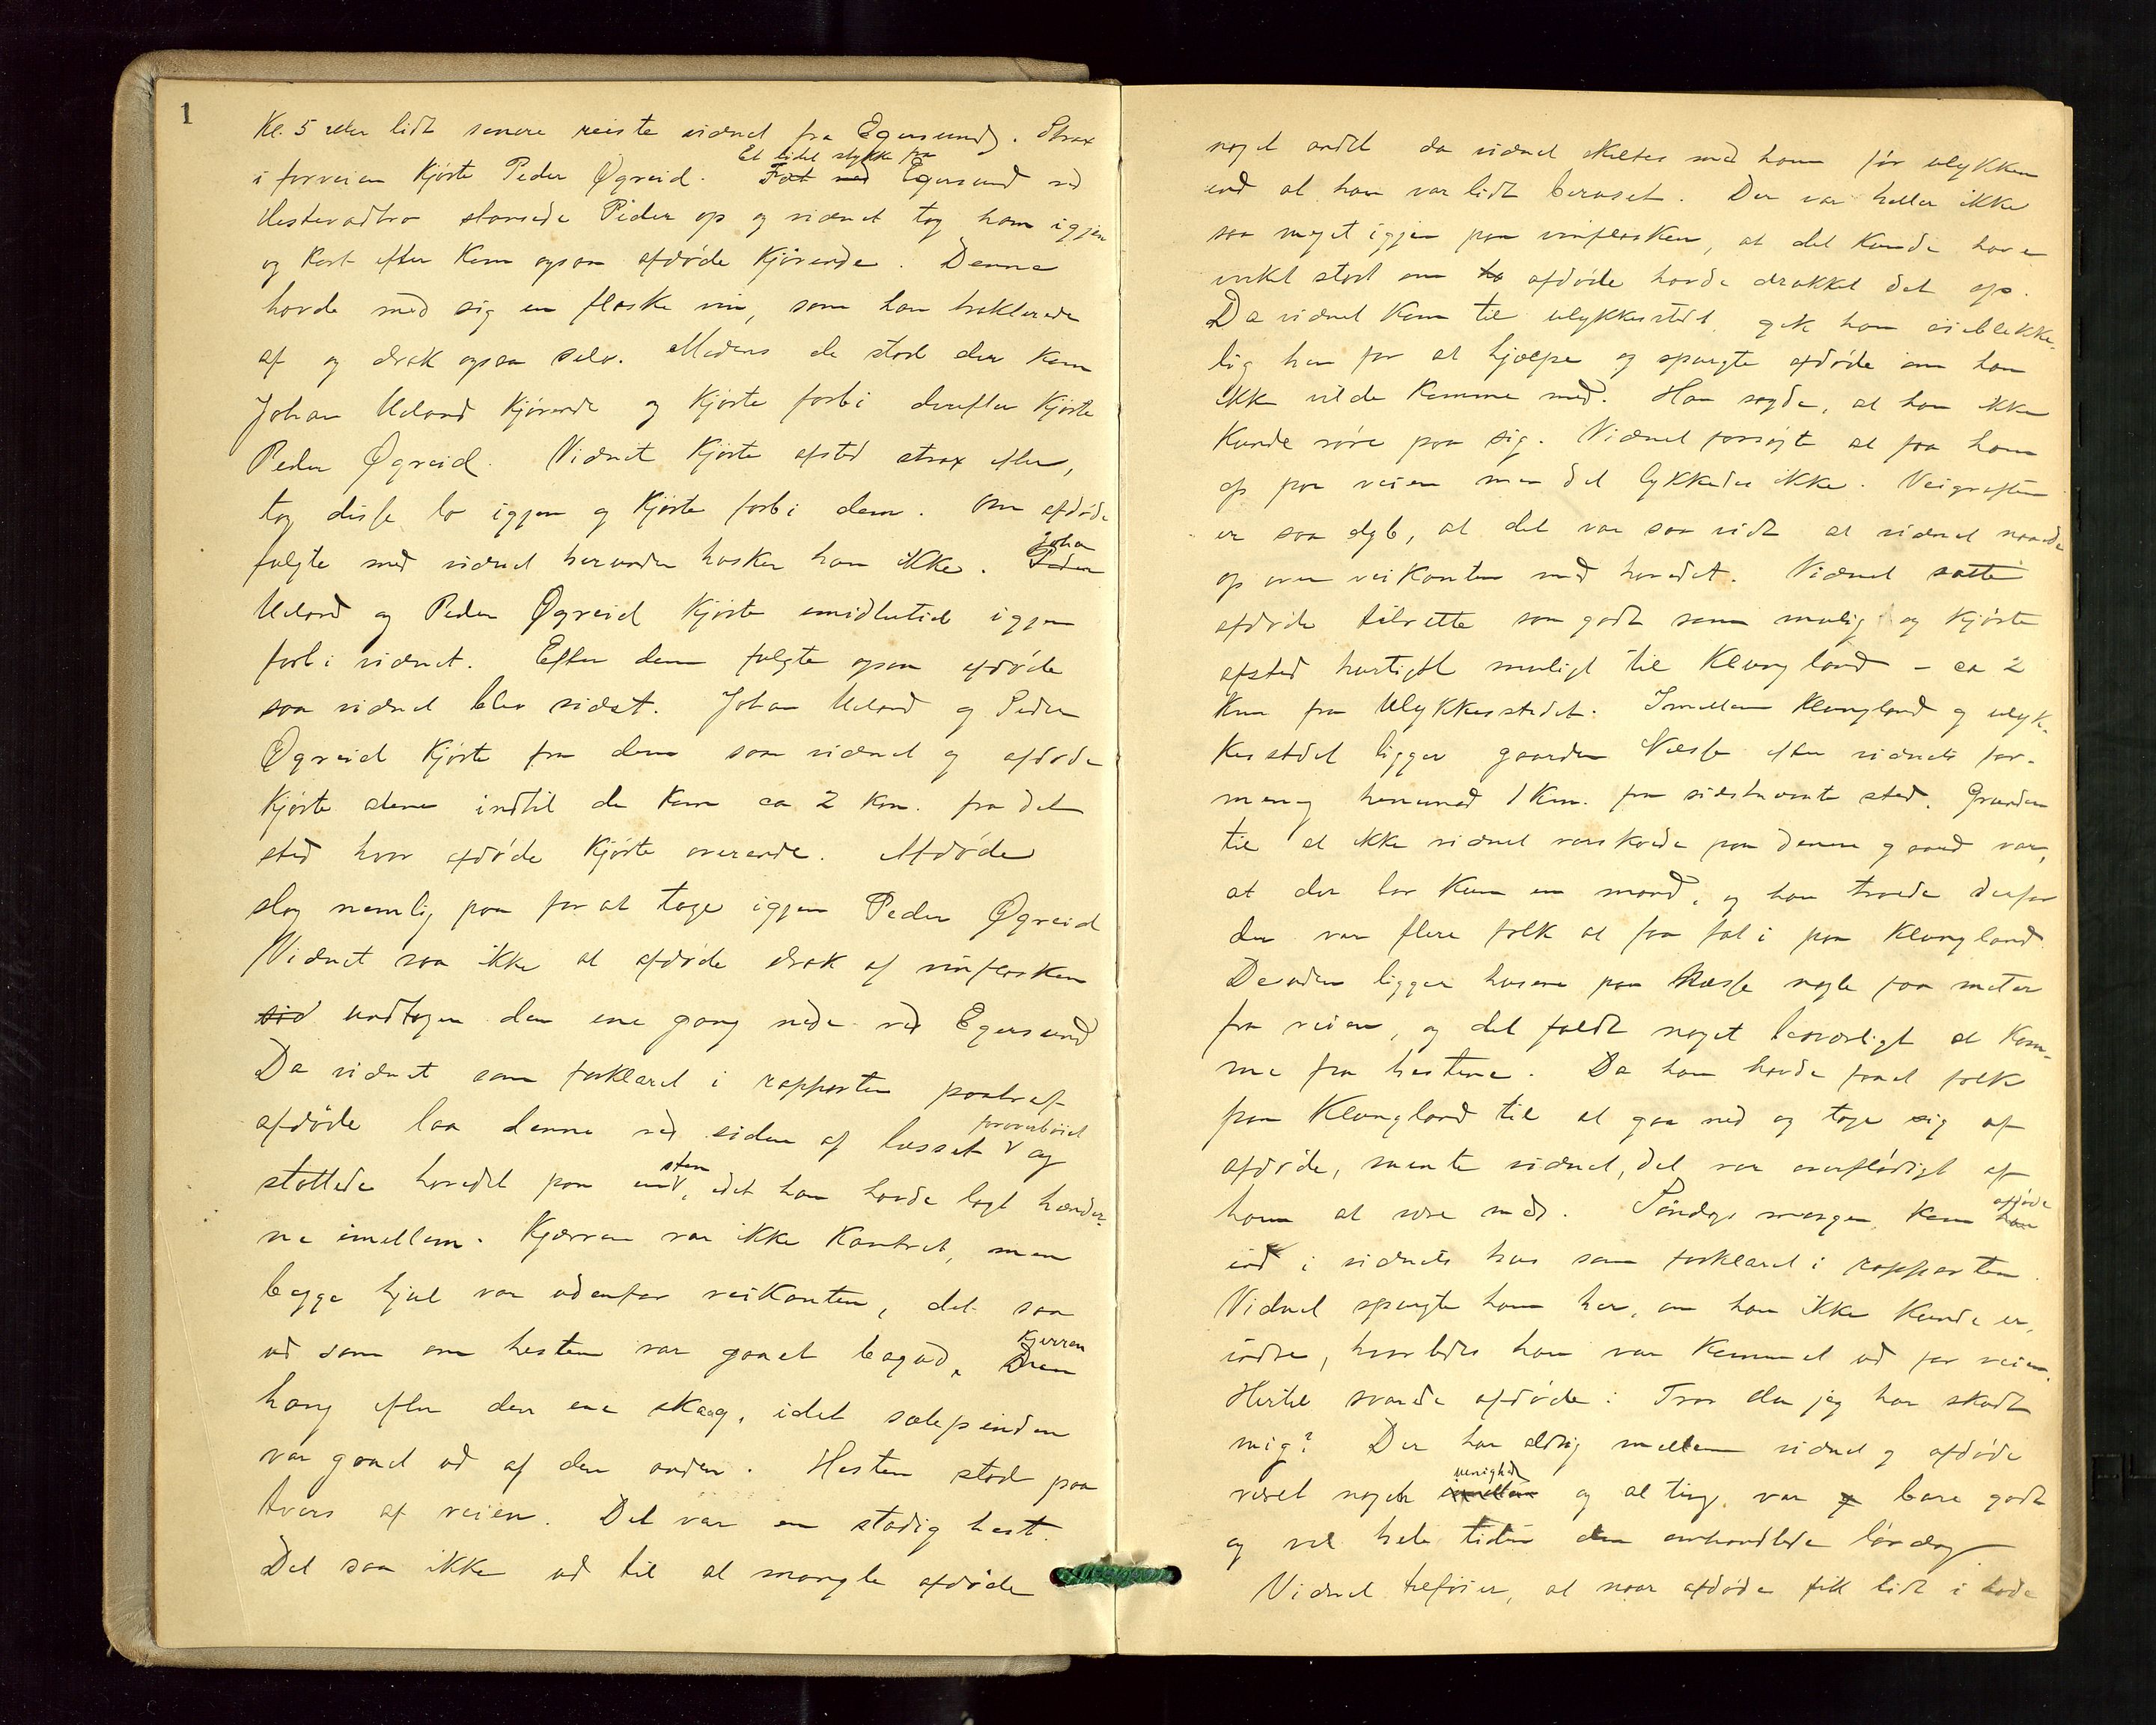 1
Kl. 5 eller lidt senere reiste vidnet fra Egersund. Strax
i forveien kjørte Peder Øgreid. Et lidet stykke fra Egersund ved
Hestevadbro stansede Peder op og vidnet tog ham igjen
og kort efter kom ogsaa afdøde kjørende. Denne
havde med sig en flaske vin, som han trakterede
af og drak ogsaa selv. Medens de stod der kom
Johan Ueland kjørende og kjørte forbi derefter kjørte
Peder Øgreid. Vidnet kjørte afsted strax efter,
tog disse to igjen og kjørte forbi dem. Om afdøde
fulgte med vidnet herunder husker han ikke. Johan
Ueland og Peder Øgreid kjørte imidlertid igjen
forbi vidnet. Efter dem fulgte ogsaa afdøde
saa vidnet blev sidst. Johan Ueland og Peder
Øgreid kjørte fra dem saa vidnet og afdøde
kjørte alene indtil de kom ca 2 km. fra det
sted hvor afdøde kjørte overende. Afdøde
slog nemlig paa for at tage igjen Peder Øgreid
Vidnet saa ikke at afdøde drak af vinflasken
undtagen den ene gang nede ved Egersund
Da vidnet som forklaret i rapporten paatraf
afdøde laa denne ved siden af læsset foroverbøiet og
støttede hovedet paa en sten, idet han havde lagt hænder-
ne imellem. Kjærren var ikke kantret, men
begge hjul var udenfor veikanten, det saa
ud som om hesten var gaaet bagud. Kjerren
hang efter den ene skaag, idet sælepinden
var gaaet ud af den anden. Hesten stod paa
tvers af veien. Det var en stadig hest.
Det saa ikke ud til at mangle afdøde
noget andet da vidnet skiltes med ham før ulykken
end at han var lidt beruset. Der var heller ikke
saa meget igjen paa vinflasken, at det kunde have
virket stort om afdøde havde drukket det op.
Da vidnet kom til ulykkesstedet gik han øieblikke-
lig hen for at hjælpe og spurgte afdøde om han
ikke vilde komme med. Han sagde, at han ikke
kunde røre paa sig. Vidnet forsøgte at faa ham
op paa veien men det lykkedes ikke. Veigrøften
er saa dyb, at det var saa vidt at vidnet naaede
op over veikanten med hovedet. Vidnet satte
afdøde tilrette saa godt som mulig og kjørte
afsted hurtigst muligt til Klungland – ca 2
km fra ulykkesstedet. Imellem Klungland og ulyk-
kesstedet ligger gaarden Næsse efter vidnets for-
mening henimod 1 km. fra sidstnævnte sted. Grunden
til at ikke vidnet varskoede paa denne gaard var,
at der bor kun en mand, og han troede derfor
der var flere folk at faa fat i paa Klungland
Desuden ligger husene paa Næsse nogle faa meter
fra veien, og det faldt noget besværligt at kom-
me fra hestene. Da han havde faaet folk
paa Klungland til at gaa ned og tage sig af
afdøde, mente vidnet, det var overflødigt af
ham at være med. Søndags morgen kom afdøde
ind i vidnets hus som forklaret i rapporten.
Vidnet spurgte ham her, om han ikke kunde er-
indre, hvorledes han var kommet ud for veien.
Hertil svarede afdøde: Tror du jeg har skadt
mig? Der har aldrig mellem vidnet og afdøde
været nogen uenighed og al ting var bare godt
og vel hele tiden den omhandlede lørdag
Vidnet tilføier, at naar afdøde fik lidt i hode